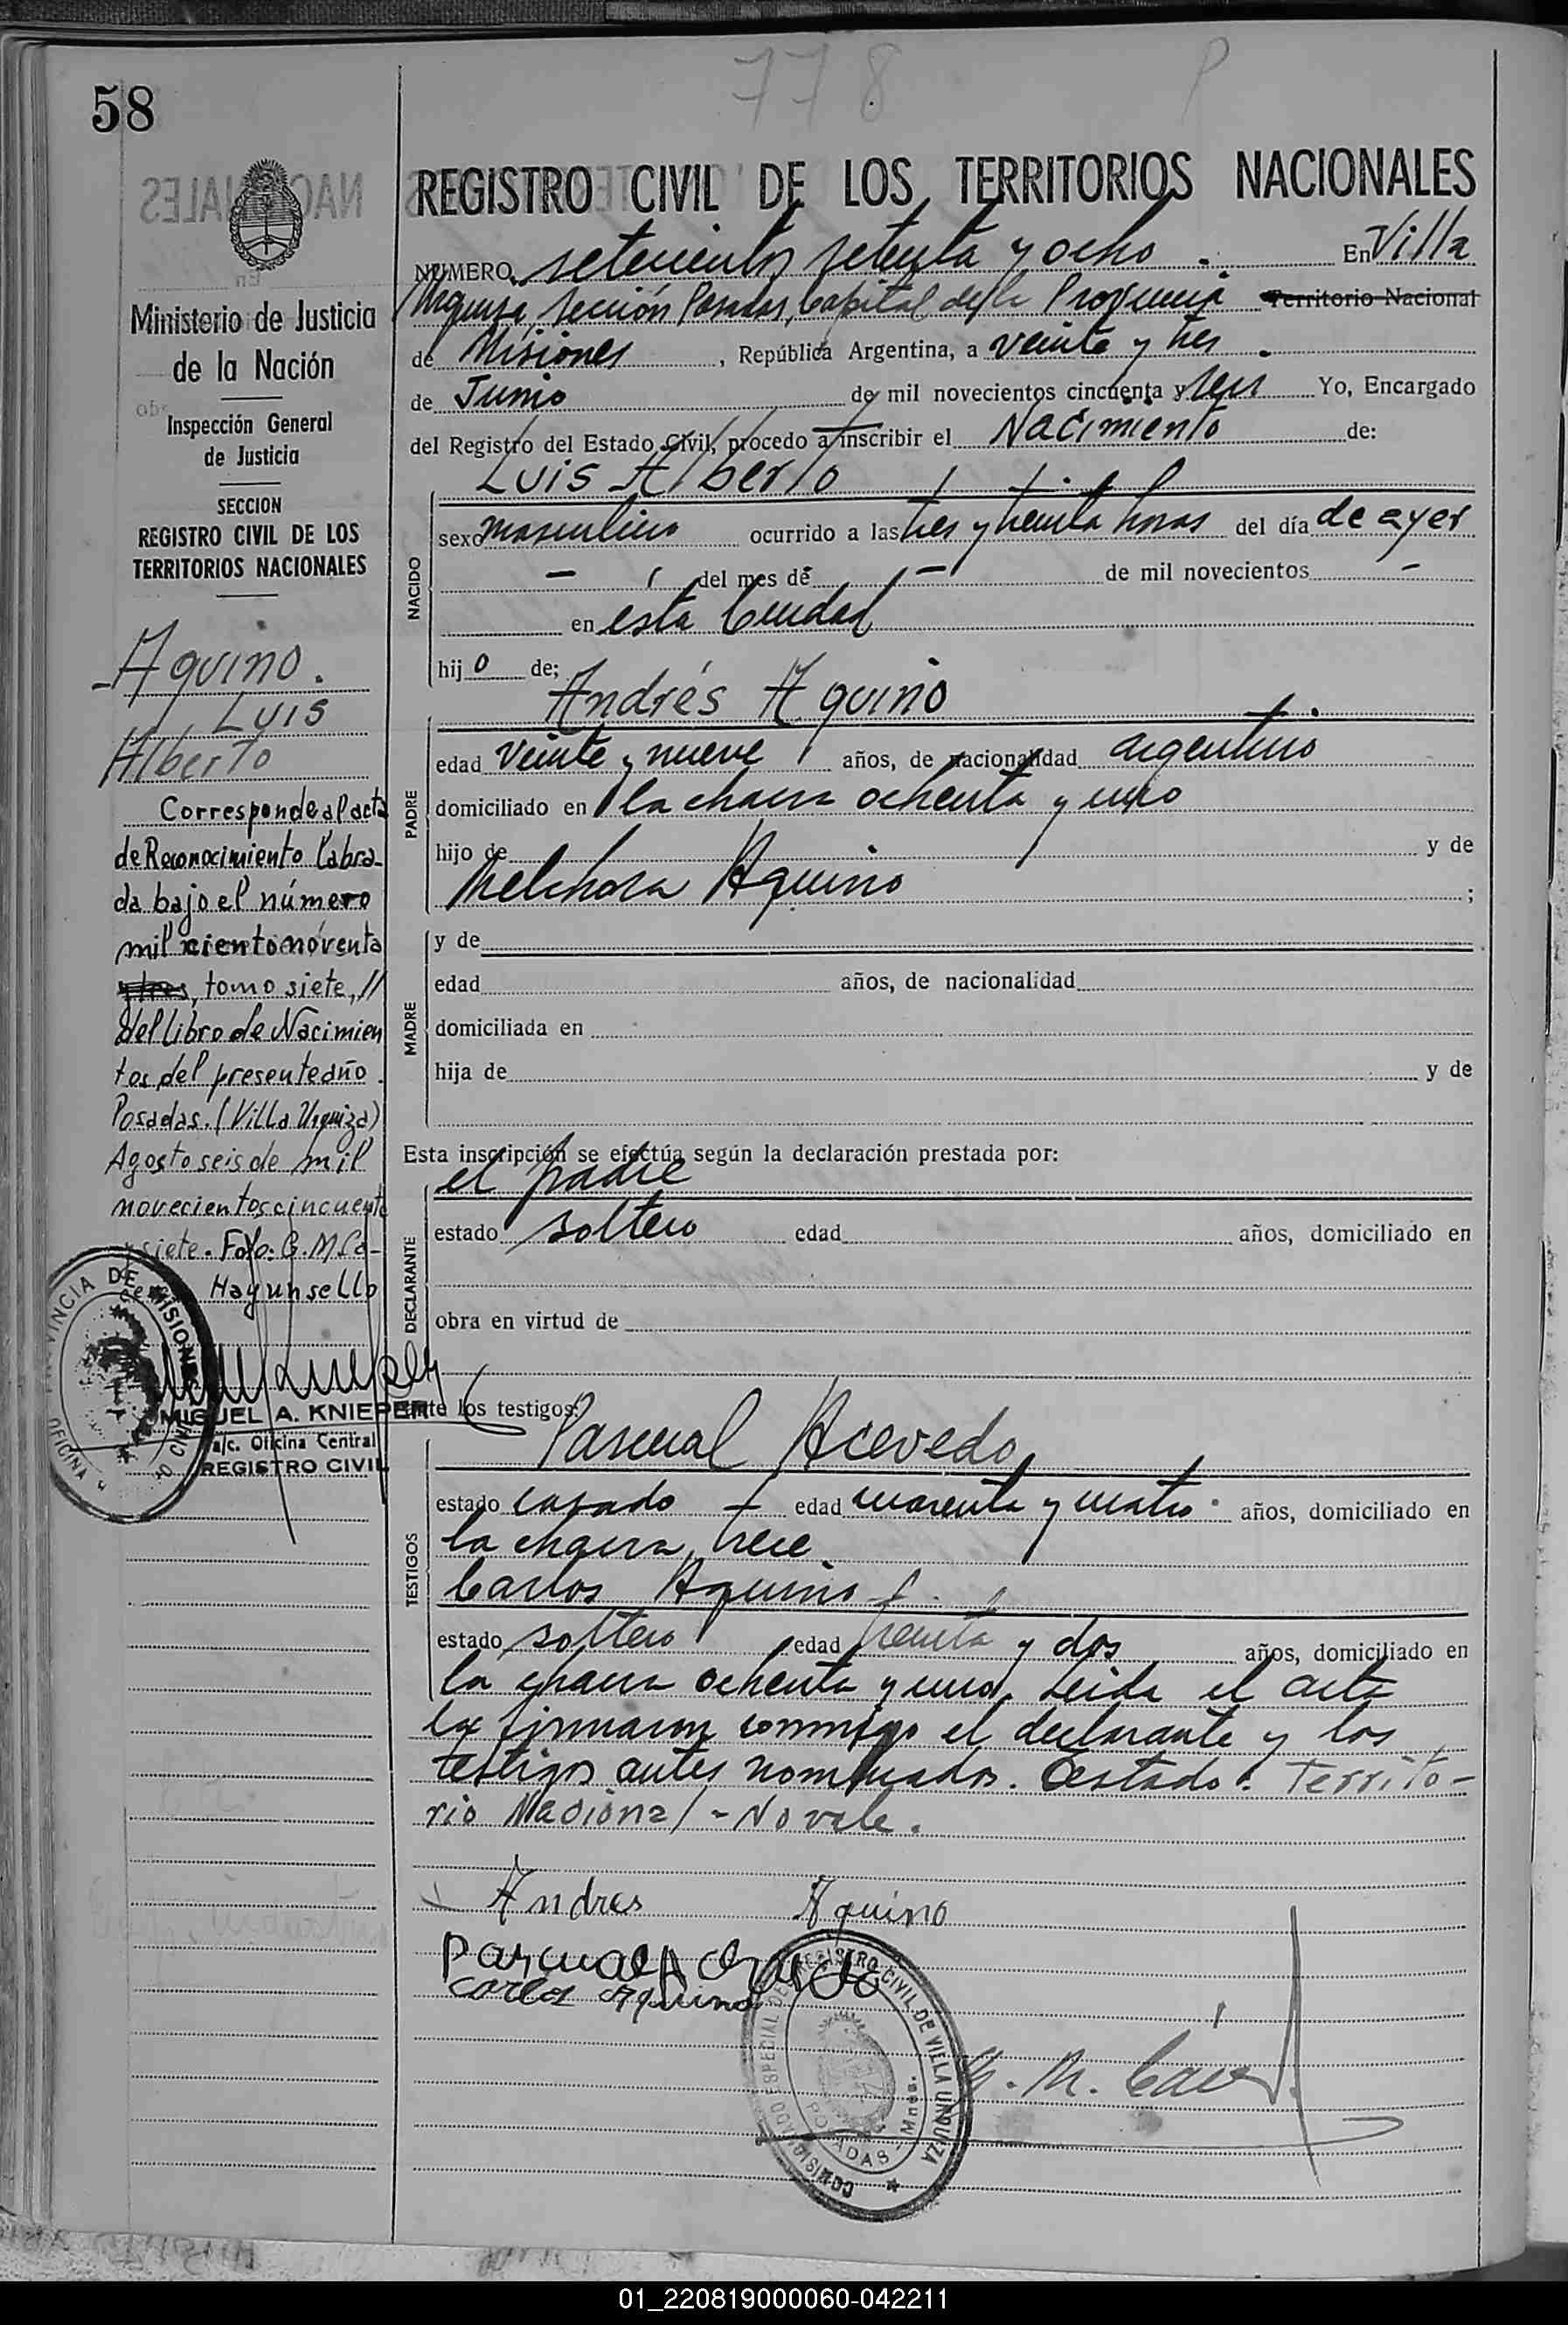 778 P
58
Ministerio de Justicia
de la Nación
Inspección General
de Justicia
SECCION
REGISTRO CIVIL DE LOS
TERRITORIOS NACIONALES
Aquino.
Luis
Alberto
Corresponde al acta
de Reconocimiento labra-
da bajo el número
mil ciento noventa
y tres, tomo siete, //
del Libro de Nacimien
tos del presente año.
Posadas. (Villa Urquiza)
Agosto seis de mil
novecientos cincuenta
y siete. Fdo: G. M.
Hay un sello
MIGUEL A. KNIEPER
a/c. Oficina Central
REGISTRO CIVIL
REGISTRO CIVIL DE LOS TERRITORIOS NACIONALES
NUMERO setecientos setenta y ocho. En Villa
Urquiza, Sección Posadas, Capital de la Provincia Territorio Nacional
de Misiones, República Argentina, a veinte y tres.
de Junio de mil novecientos cincuenta y seis Yo, Encargado
del Registro del Estado Civil, procedo a inscribir el Nacimiento de:
Luis Alberto
NACIDO
sexo masculino ocurrido a las tres y treinta horas del día de ayer
— del mes de — de mil novecientos —
en esta Ciudad
hijo de;
Andrés Aquino
PADRE
edad veinte y nueve años, de nacionalidad argentino
domiciliado en la chacra ochenta y uno
hijo de y de
Melchora Aquino ;
MADRE
y de
edad años, de nacionalidad
domiciliada en
hija de y de
Esta inscripción se efectúa según la declaración prestada por:
el padre
DECLARANTE
estado soltero edad años, domiciliado en
obra en virtud de
ante los testigos:
Pascual Acevedo
TESTIGOS
estado casado edad cuarenta y cuatro años, domiciliado en
la chacra trece
Carlos Aquino
estado soltero edad treinta y dos años, domiciliado en
la chacra ochenta y uno. Leida el acta
la firmaron conmigo el declarante y los
testigos antes nombrados. Testado: Territo-
rio Nacional - No vale.
Andres Aquino
Pascual Acevedo
Carlos Aquino
COMISIONADO ESPECIAL DEL REGISTRO CIVIL DE VILLA URQUIZA
POSADAS Mnes.
01_220819000060-042211